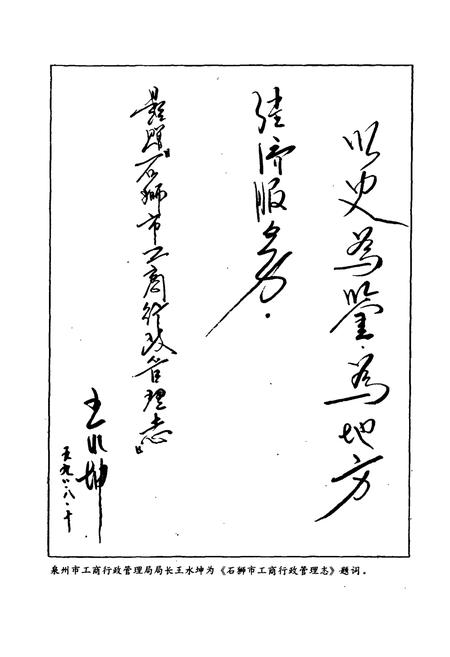 以史為鉴·為地方
经济服务.
石獅市工商行政管理志》
王水坤
泉州市工商行政管理局局长王水坤为《石狮市工商行政管理志》题词。